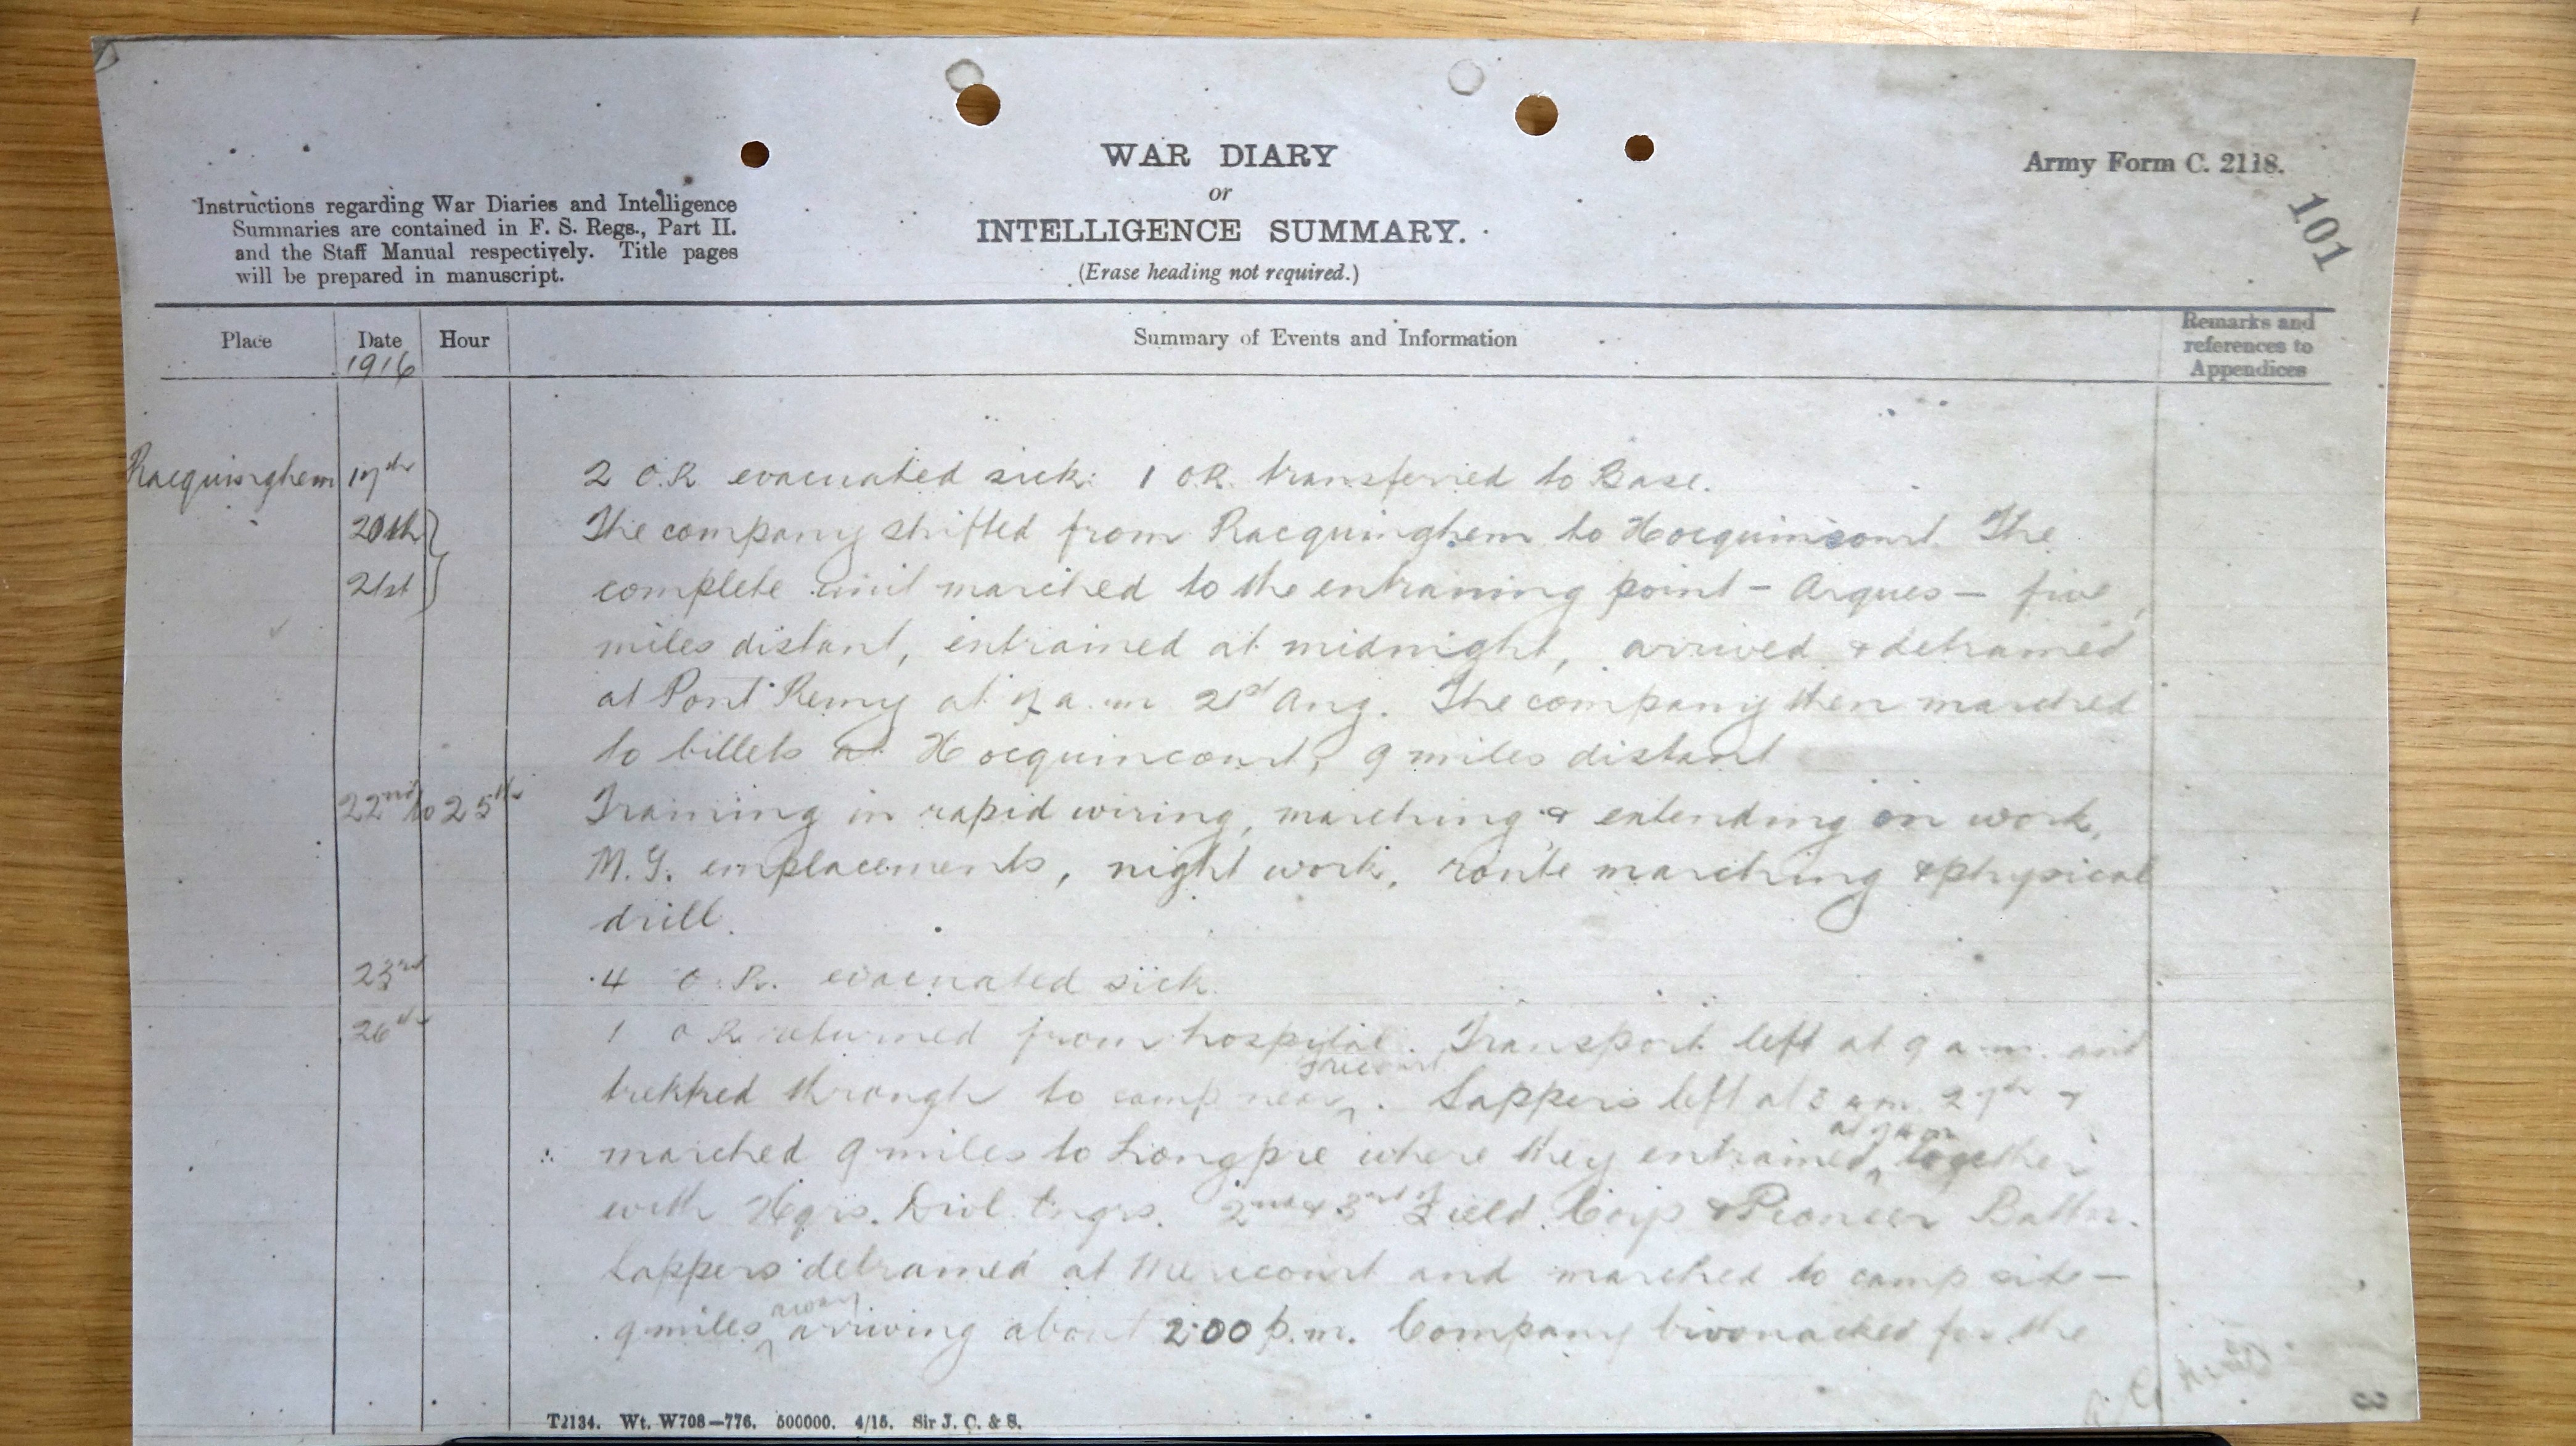 WAR DIARY
or
INTELLIGENCE SUMMARY.
(Erase heading not required.)
Army Form C. 2118.
101
Instructions regarding War Diaries and Intelligence
Summaries are contained in F. S. Regs., Part II.
and the Staff Manual respectively. Title pages
will be prepared in manuscript.
Place
Date
1916
Hour
Summary of Events and Information
Remarks and
references to
Appendices
Racquinghem 17th 2 O.R. evacuated sick: 1 O.R. transferred to Base.
20th The company shifted from Racquinghem to Hocquincourt. The
21st complete unit marched to the entraining point - Arques - five
miles distant, entrained at midnight, arrived & detrained
at Pont Remy at a.m. 21st Aug. The company then marched
to billets at Hocquincourt, 9 miles distant
22nd to 25th Training in rapid wiring, marching & extending on work,
M.G. emplacements, night work, route marching & physical
drill.
23rd 4 O.R. evacuated sick.
26th 1 O.R. returned from hospital. Transport left at 9 a.m. and
Fricourt
trekked through to camp near . Sappers left at 3 a.m. 27th &
at 7 am
marched 9 miles to Longpre where they entrained together
with Hqrs. Divl. Engrs. 2nd & 3rd Field Coys & Pioneer Battn.
Sappers detrained at Mericourt and marched to camp site -
away
9 miles arriving about 2.00 p.m. Company bivouacked for the
T2134. Wt. W708-776. 500000. 4/15. Sir J. C. & S.
3